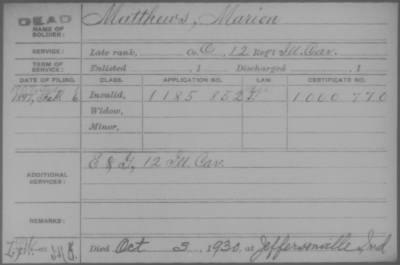 DEAD
NAME OF SOLDIER: Matthews, Marion
SERVICE: Late rank, Co. C, 12 Reg't Ill. Cav.
TERM OF SERVICE: Enlisted , 1 Discharged , 1
DATE OF FILING. CLASS. APPLICATION NO. LAW. CERTIFICATE NO.
1897, 6 Invalid, 1185 852 1000 770
Widow,
Minor,
ADDITIONAL SERVICES: E & G, 12 Ill. Cav.
REMARKS:
Died Oct 3, 1930, at Jeffersonville Ind